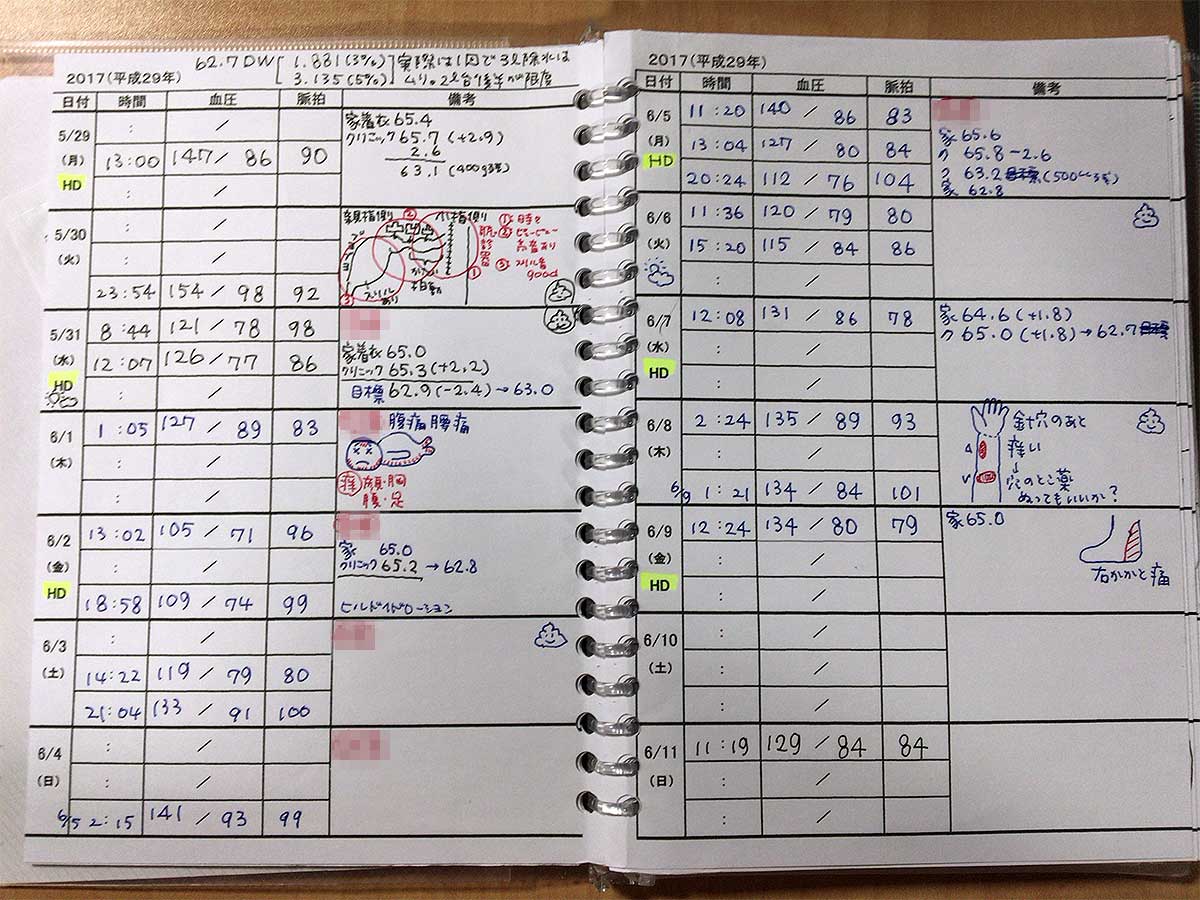 62.7DW [ 1.881(3%) ] 実際は1回で3L除水は
3.135(5%) ムリ。2L台後半が限度
2017(平成29年)
日付 時間 血圧 脈拍 備考
5/29
(月)
HD
: /
13:00 147/86 90
: /
家着衣 65.4
クリニック 65.7 (+2.9)
2.6
63.1 (400g残)
5/30
(火)
: /
: /
23:54 154/98 92
親指側 ② 小指側
①:時々
②ヒューヒュー
高音あり
③:スリル音
good
聴診器
スリル
あり
③
①
5/31
(水)
HD
8:44 121/78 98
12:07 126/77 86
: /
家着衣 65.0
クリニック 65.3(+2.2)
目標 62.9(-2.4)→63.0
6/1
(木)
1:05 127/89 83
: /
: /
腹痛 腰痛
痒 顔・胸
腹・足
6/2
(金)
HD
13:02 105/71 96
: /
18:58 109/74 99
家 65.0
クリニック 65.2 →62.8
ヒルドイドローション
6/3
(土)
: /
14:22 119/79 80
21:04 133/91 100
6/4
(日)
: /
: /
6/5 2:15 141/93 99
2017(平成29年)
日付 時間 血圧 脈拍 備考
6/5
(月)
HD
11:20 140/86 83
13:04 127/80 84
20:24 112/76 104
家 65.6
ク 65.8-2.6
ク 63.2 (500cc残)
家 62.8
6/6
(火)
11:36 120/79 80
15:20 115/84 86
: /
6/7
(水)
HD
12:08 131/86 78
: /
: /
家 64.6 (+1.8)
ク 65.0 (+1.8)→62.7
6/8
(木)
2:24 135/89 93
: /
6/9 1:21 134/84 101
針穴のあと
痒い
↓
穴のとこ薬
ぬってもいいか?
A
V
6/9
(金)
HD
12:24 134/80 79
: /
: /
家 65.0
右かかと痛
6/10
(土)
: /
: /
: /
6/11
(日)
11:19 129/84 84
: /
: /